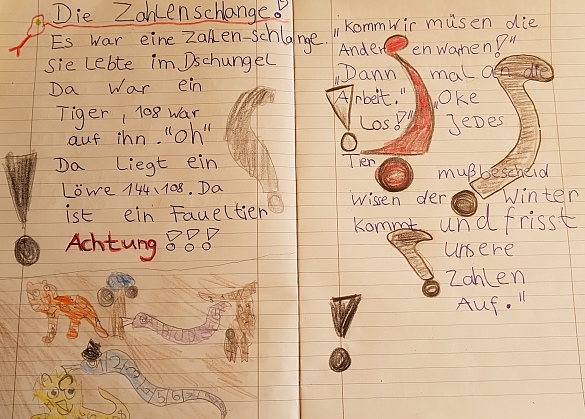 Die Zahlenschange!
Es war eine Zahlen-schlange.
Sie Lebte im Dschungel
Da war ein
Tiger, 108 war
auf ihn. "Oh"
Da Liegt ein
Löwe 144,108. Da
ist ein Faueltier
Achtung !!!
"Kommwir müsen die
Ander en warnen!"
"Dann mal an die
Arbeit." "Oke
Los!" Jedes
Tier mußbescheid
wissen der Winter
Kommt und frisst
unsere
Zahlen
Auf."